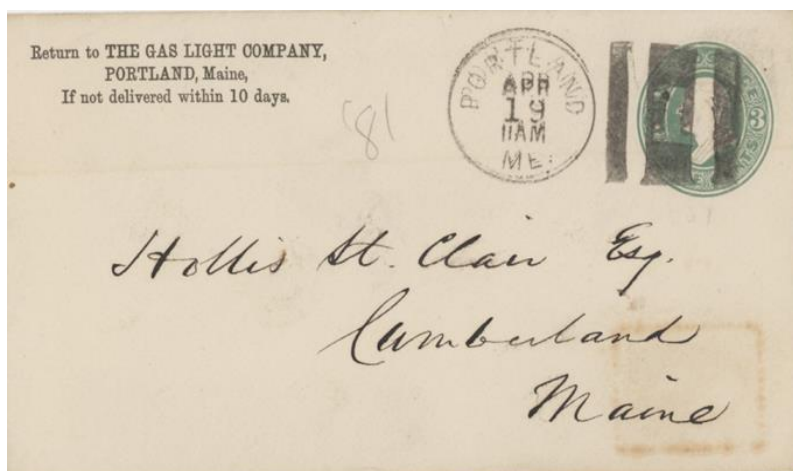 Return to THE GAS LIGHT COMPANY,
PORTLAND, Maine,
If not delivered within 10 days.
'81
PORTLAND
APR
19
11AM
ME.
3
Hollis St. Clair Esq.
Cumberland
Maine